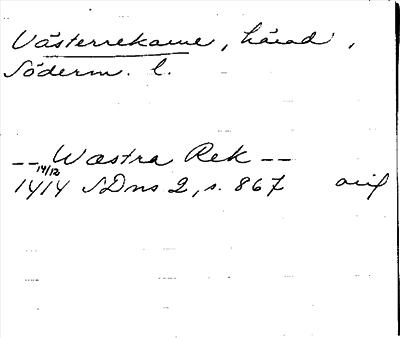 Västerrekarne, härad,
Söderm. l.
-- Wæstra Rek --
14/12
1414 SDns 2, s. 867 orig